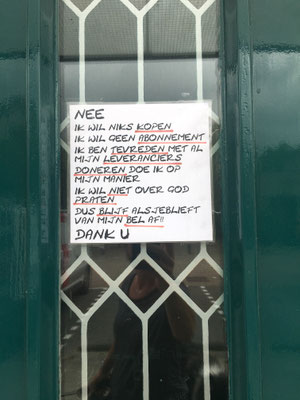 NEE
IK WIL NIKS KOPEN
IK WIL GEEN ABONNEMENT
IK BEN TEVREDEN MET AL
MIJN LEVERANCIERS
DONEREN DOE IK OP
MIJN MANIER
IK WIL NIET OVER GOD
PRATEN
DUS BLIJF ALSJEBLIEFT
VAN MIJN BEL AF!!
DANK U